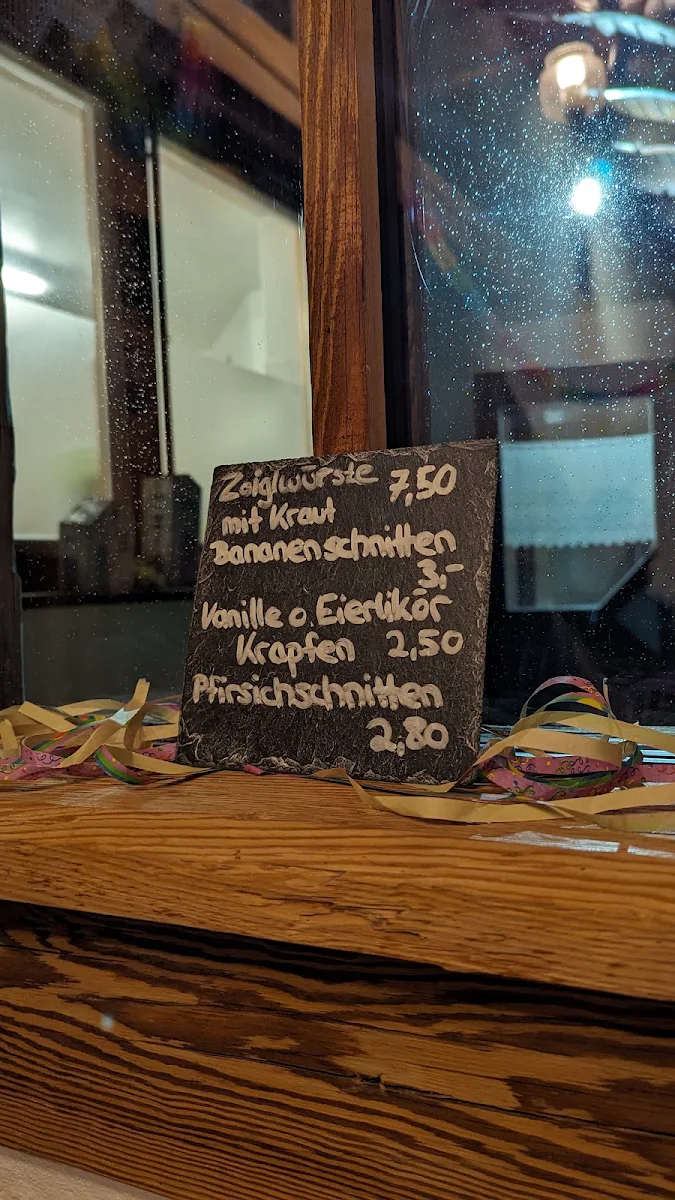 Zoiglwürste 7,50
mit Kraut
Bananenschnitten
3,-
Vanille o. Eierlikör
Krapfen 2,50
Pfirsichschnitten
2,80